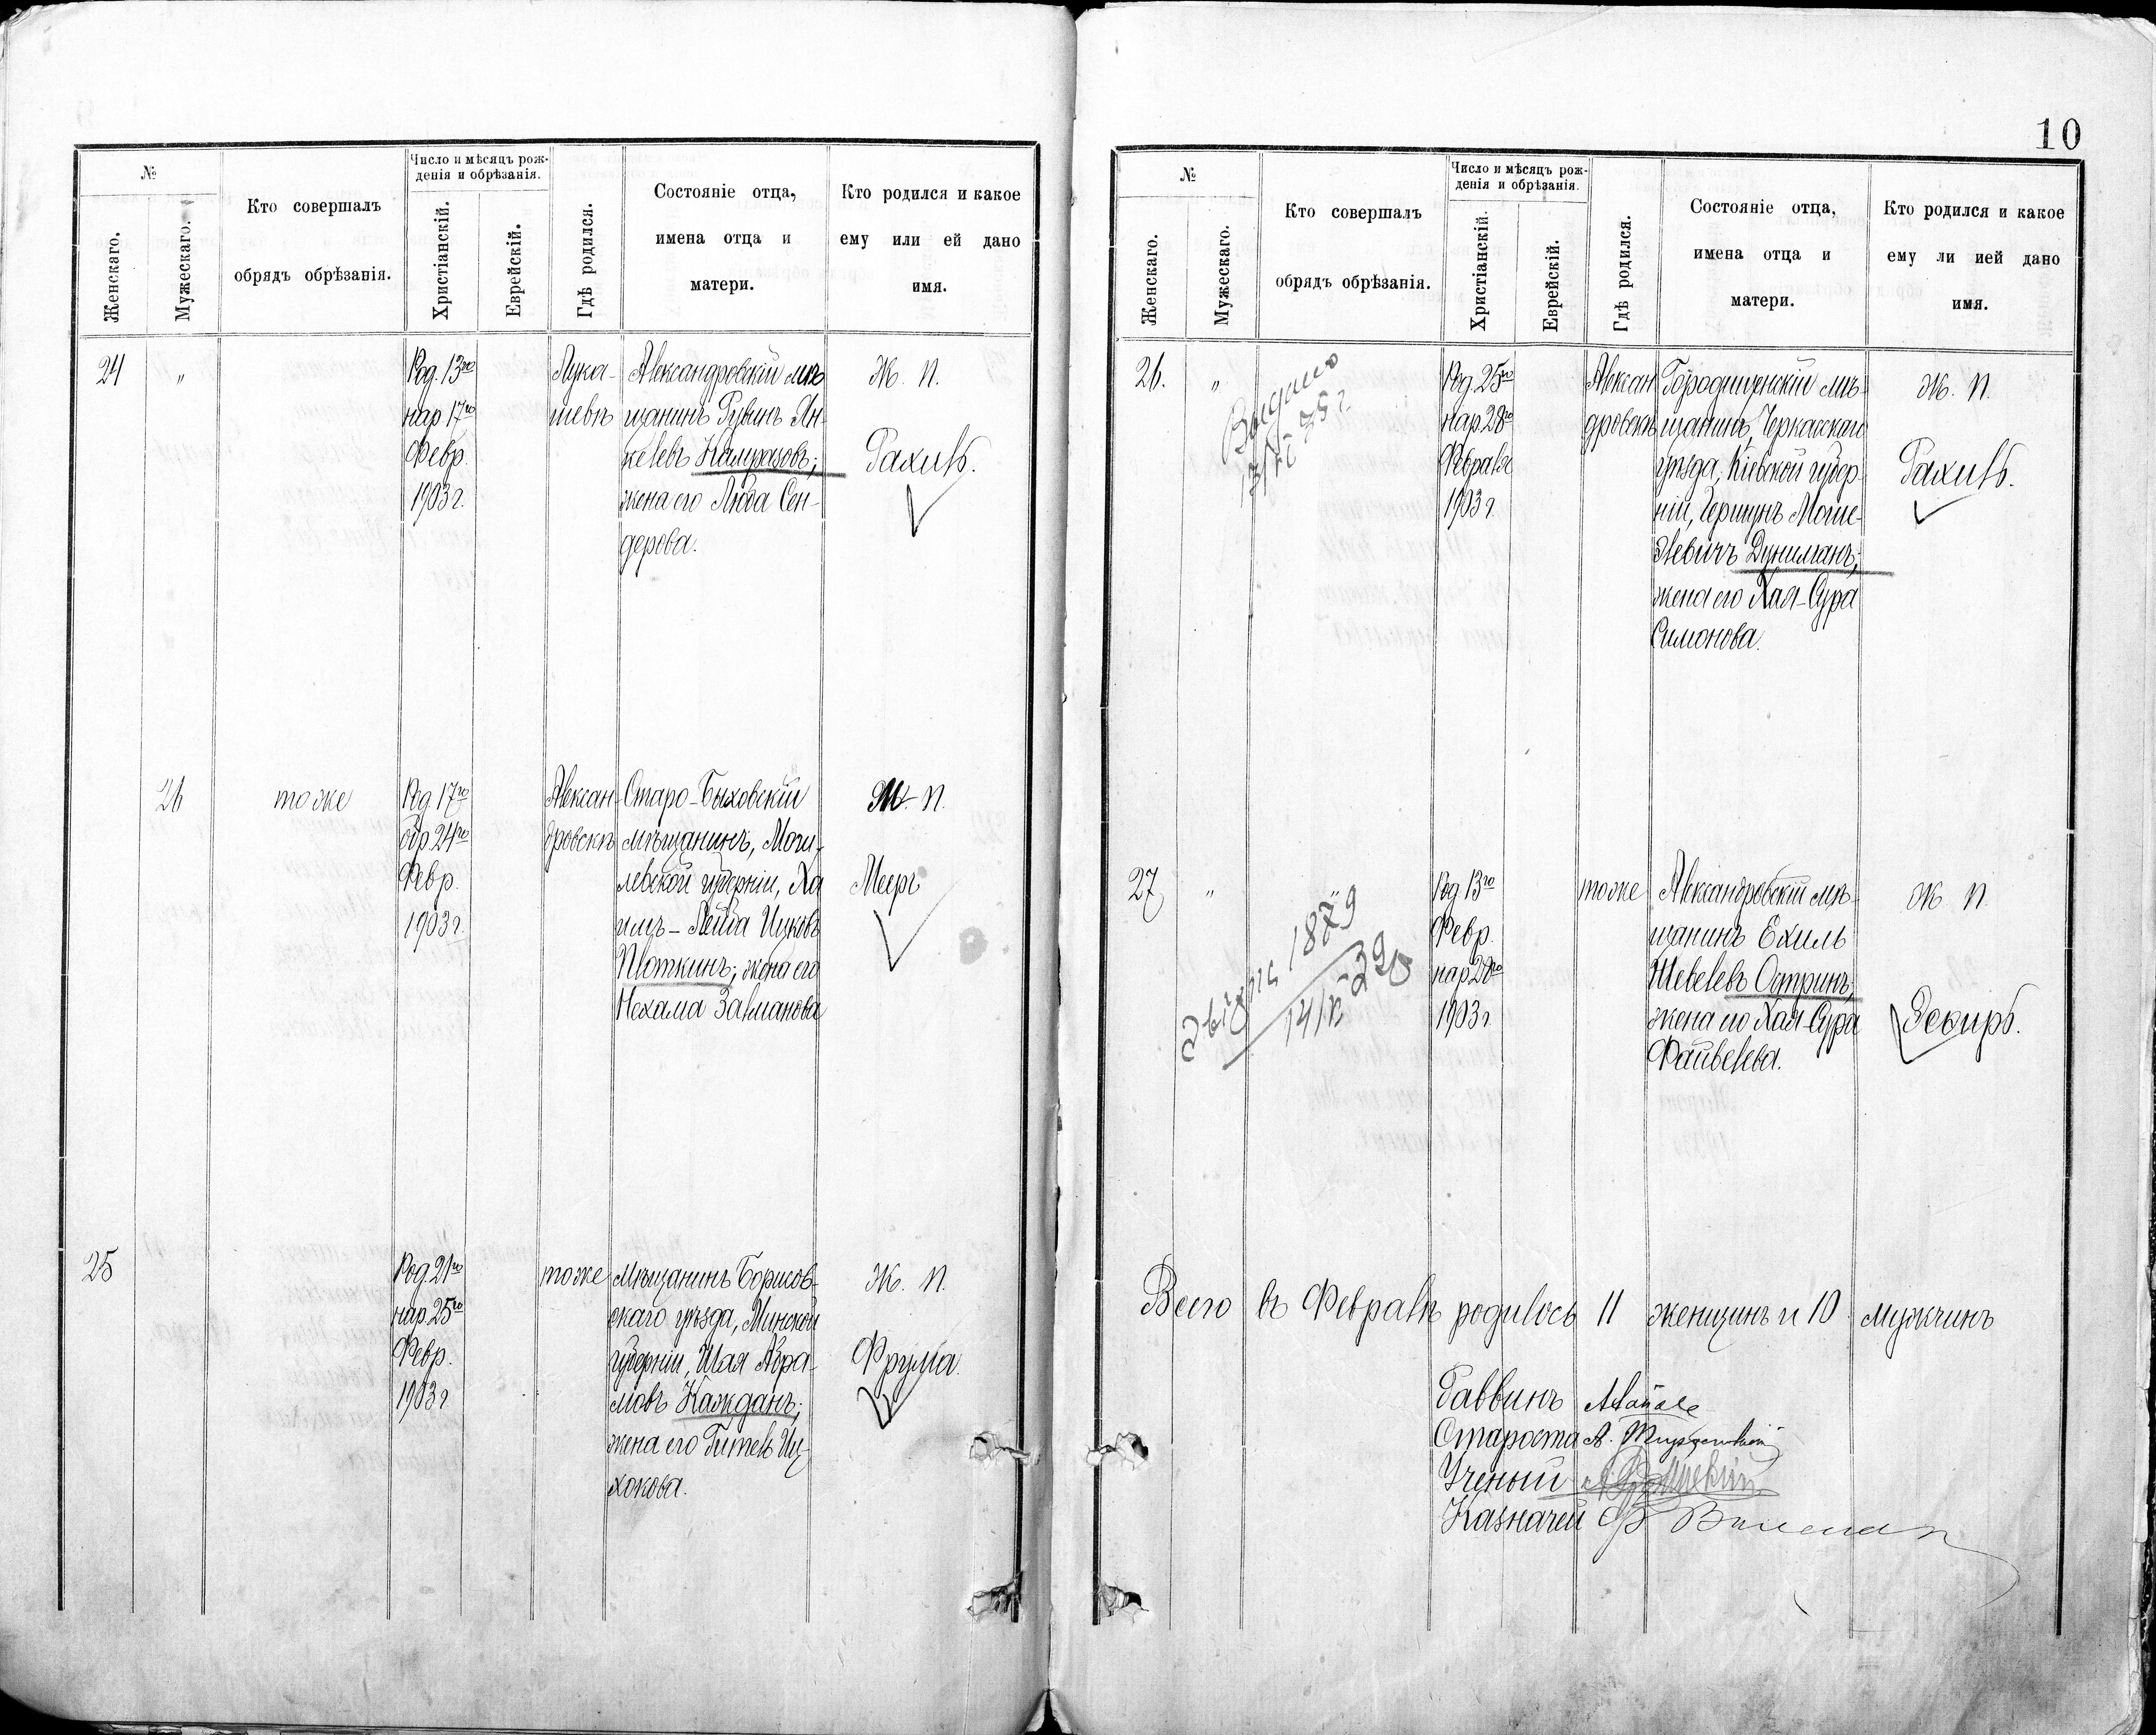 №
Женскаго.
Мужескаго.
Кто совершалъ
обрядъ обрѣзанія.
Число и мѣсяцъ рож-
денія и обрѣзанія.
Христіанскій.
Еврейскій.
Гдѣ родился.
Состояніе отца,
имена отца и
матери.
Кто родился и какое
ему или ей дано
имя.
24
"
Род. 13го
нар 17го
Февр.
1903 г.
Лука-
шевкѣ
Александровскій мѣ
щанинъ Рувинъ Ян-
келевъ
жена его Люба Сен-
дерова.
Ж. П.
Рахиль.
26
тоже
Род 17го
обр 24го
Февр.
1903 г.
Алексан
дровскѣ
Старо-Быховскій
мѣщанинъ, Моги-
левской губерніи, Ха
имъ-Лейба Ицковъ
Плоткинъ; жена его
Нехама Залманова
М. П.
Мееръ
25
Род. 21го
нар. 25го
Февр.
1903 г
тоже
Мѣщанинъ Борисов-
скаго уѣзда, Минской
губерніи, Шая Абра-
мовъ Каждань;
жена его Гитель Иц-
хокова.
Ж. П.
Фрума.
10
№
Женскаго.
Мужескаго.
Кто совершалъ
обрядъ обрѣзанія.
Число и мѣсяцъ рож-
денія и обрѣзанія.
Христіанскій.
Еврейскій.
Гдѣ родился.
Состояніе отца,
имена отца и
матери.
Кто родился и какое
ему ли ией дано
имя.
26.
"
Выдано
Род. 25го
нар. 28го
Февраля
1903 г.
Алексан
дровскѣ
Городищенскій мѣ-
щанинъ, Черкасскаго
уѣзда, Кіевской губер-
ніи, Гершунъ Моше-
левичъ
жена его Хая-Сура
Симонова.
Ж. П.
Рахиль.
27
"
Род 13го
Февр.
нар 28го
1903 г.
тоже
Александровскій мѣ-
щанинъ Ехиль
Шевелевъ Острин;
жена его Хая-Сура
Файвелева.
Ж П.
Эсѳирь.
Всего въ Февралѣ родилось 11 женщинъ и 10 мужчинъ
Раввинъ
Староста А.
Ученый
Казначей